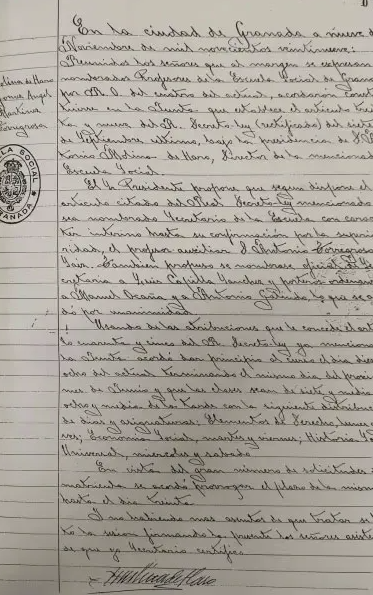 En la ciudad de Granada a nueve de
Noviembre de mil novecientos veintinueve:
Reunidos los señores que al margen se expresan
nombrados Profesores de la Escuela Social de Granada
por R. O. del cuatro del actual, acordaron consti
tuirse en la Junta que establece el artículo trein
ta y nueve del R. Decreto-ley (rectificado) del siete
de Septiembre último, bajo la presidencia de D.
Molina de Haro, Director de la mencionada
Escuela Social.
El Sr. Presidente propone que segun dispone el
artículo citado del Real Decreto-ley mencionado
sea nombrado Secretario de la Escuela con carac
ter interino hasta su confirmación por la superio
ridad, el profesor auxiliar D. Antonio
Tambien propuso se nombrase oficial de Se
cretaria a Luis Castilla Sanchez y porteros ordenanzas
a Manuel Ocaña y a Antonio Galindo, lo que se acor
dó por unanimidad.
Usando de las atribuciones que le concede el arti
lo cuarenta y cinco del R. Decreto-ley ya menciona
la Junta acordó dar principio al curso el dia diez
ocho del actual terminando el mismo dia del proxi
mes de Junio y que las clases sean de siete y media
ocho y media de la tarde con la siguiente distribuc
de dias y asignaturas: Elementos de Derecho, lunes
ves; Economia Social, martes y viernes; Historia
Universal, miercoles y sabado.
En vista del gran número de solicitudes
matricula se acordó prorrogar el plazo de la mism
hasta el dia treinta.
Y no habiendo mas asuntos de que tratar se
tó la sesion firmando la presente los señores asist
de que yo Secretario certifico.
Molina de Haro
Angel
Martinez
ESCUELA SOCIAL
GRANADA